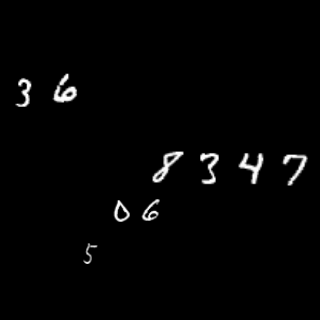 36
8347
06
5